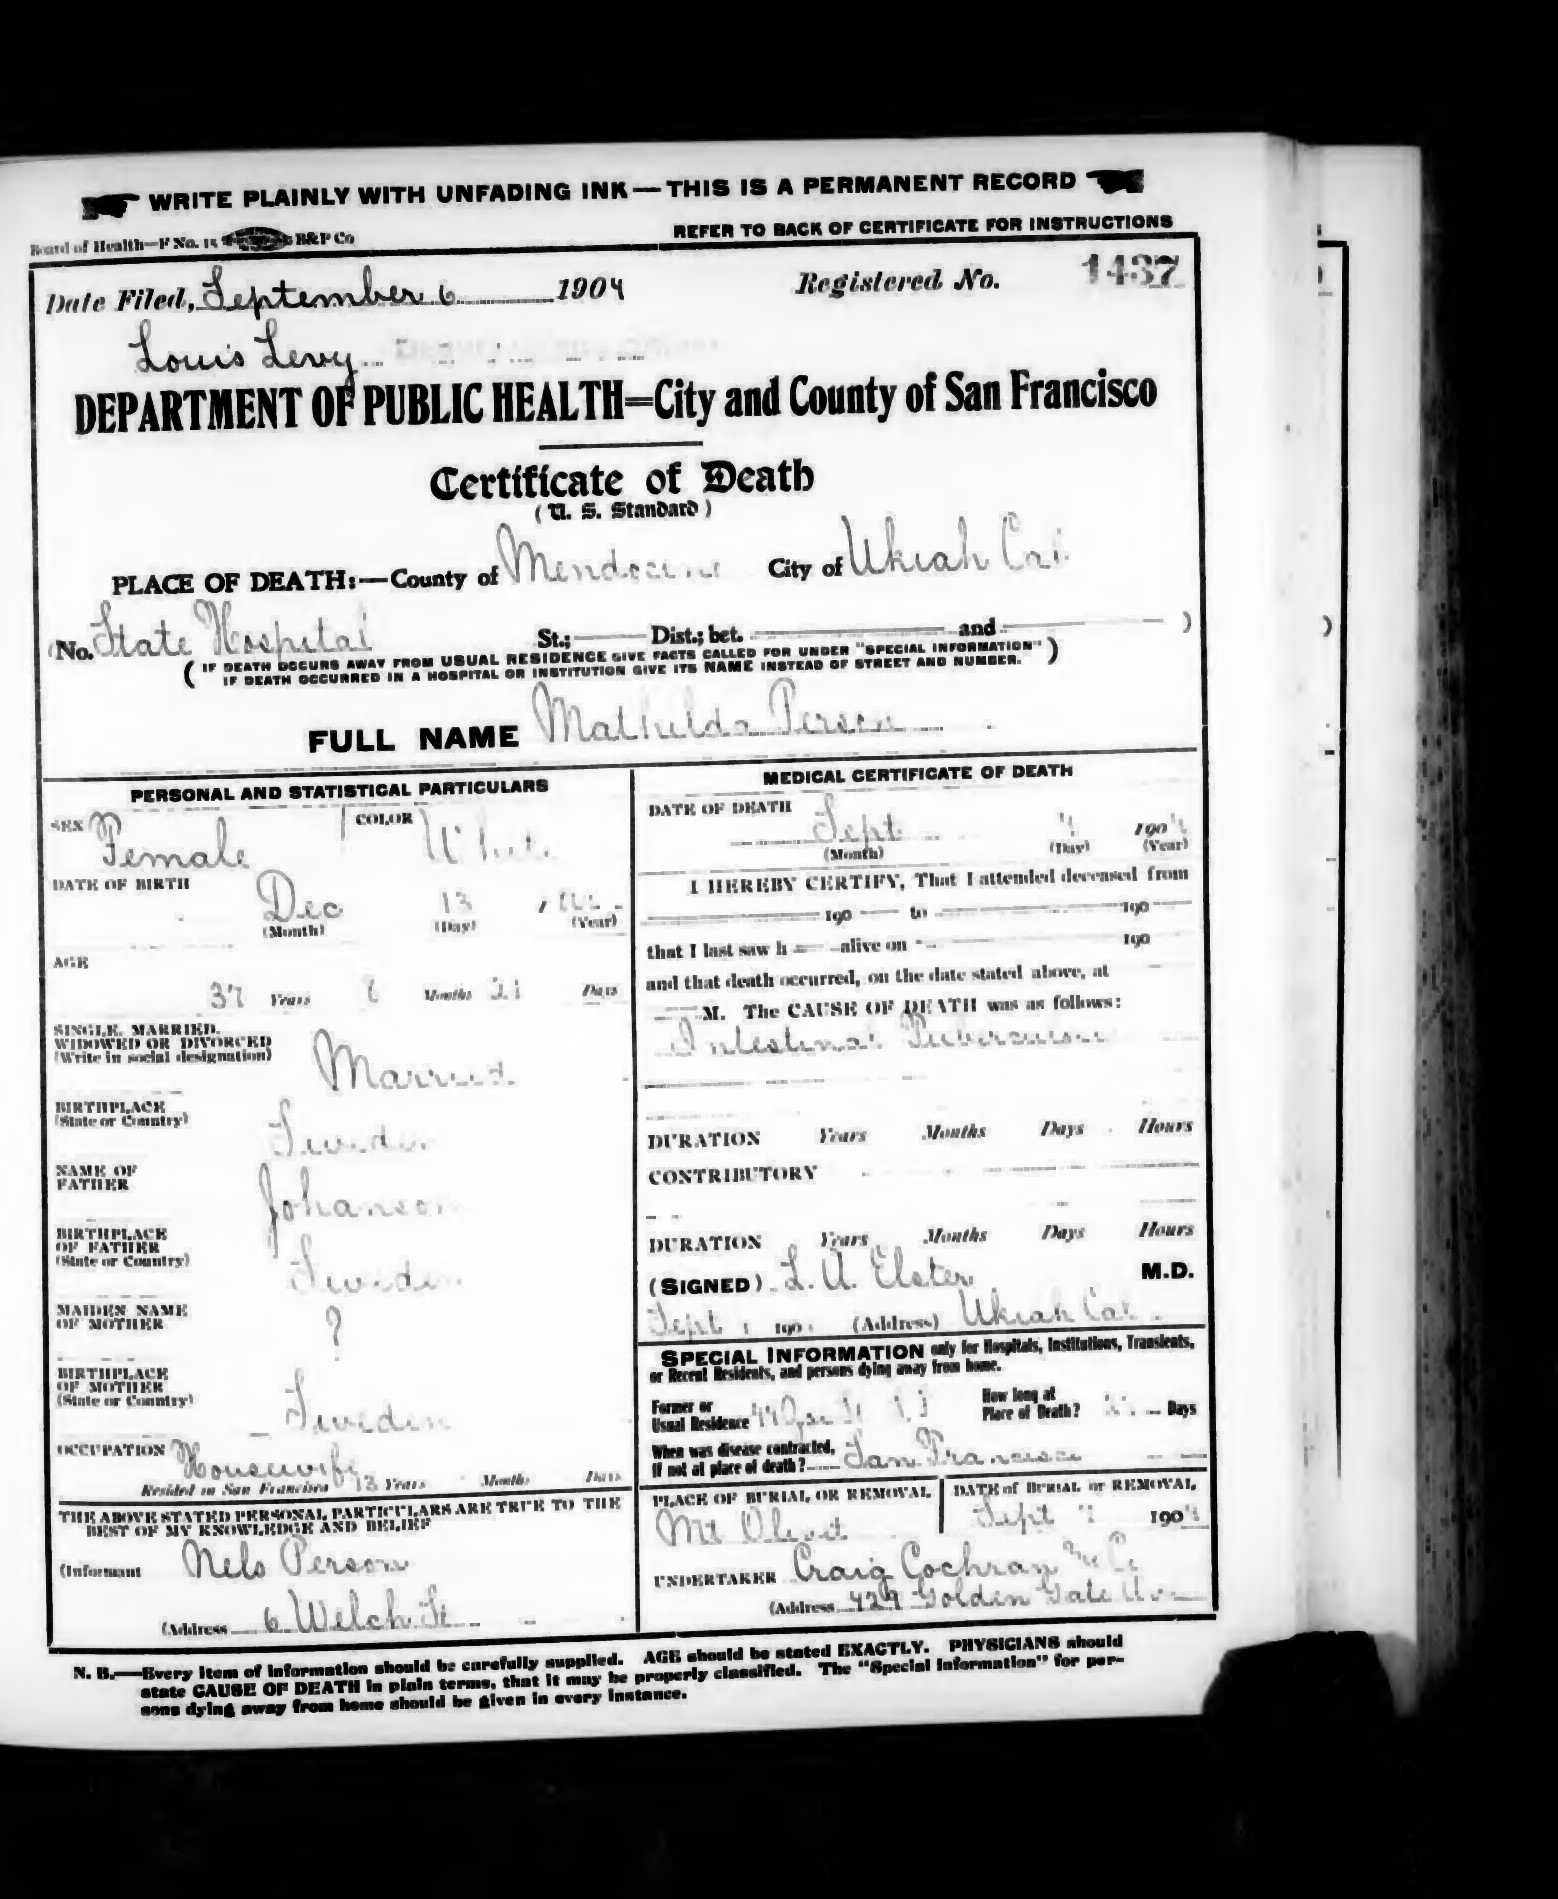 WRITE PLAINLY WITH UNFADING INK — THIS IS A PERMANENT RECORD
Board of Health—F No. 15 B&P Co
REFER TO BACK OF CERTIFICATE FOR INSTRUCTIONS
Date Filed, September 6 1904 Registered No. 1437
Louis Levy
DEPARTMENT OF PUBLIC HEALTH=City and County of San Francisco
Certificate of Death
(U. S. Standard)
PLACE OF DEATH:—County of Mendocino City of Ukiah Cal
(No. State Hospital St.; Dist.; bet. and )
( IF DEATH OCCURS AWAY FROM USUAL RESIDENCE GIVE FACTS CALLED FOR UNDER "SPECIAL INFORMATION" )
IF DEATH OCCURRED IN A HOSPITAL OR INSTITUTION GIVE ITS NAME INSTEAD OF STREET AND NUMBER.
FULL NAME Mathilda Person
PERSONAL AND STATISTICAL PARTICULARS
SEX Female COLOR White
DATE OF BIRTH Dec 13
(Month) (Day) (Year)
AGE
37 Years 8 Months 21 Days
SINGLE, MARRIED,
WIDOWED OR DIVORCED
(Write in social designation) Married
BIRTHPLACE
(State or Country) Sweden
NAME OF
FATHER Johanson
BIRTHPLACE
OF FATHER
(State or Country) Sweden
MAIDEN NAME
OF MOTHER ?
BIRTHPLACE
OF MOTHER
(State or Country) Sweden
OCCUPATION Housewife
Resided in San Francisco 13 Years Months Days
THE ABOVE STATED PERSONAL PARTICULARS ARE TRUE TO THE
BEST OF MY KNOWLEDGE AND BELIEF
(Informant Nels Person
(Address 6 Welch St
MEDICAL CERTIFICATE OF DEATH
DATE OF DEATH
Sept 4 1904
(Month) (Day) (Year)
I HEREBY CERTIFY, That I attended deceased from
190 to 190
that I last saw h alive on 190
and that death occurred, on the date stated above, at
M. The CAUSE OF DEATH was as follows:
Intestinal Tuberculosis
DURATION Years Months Days Hours
CONTRIBUTORY
DURATION Years Months Days Hours
(SIGNED) L. A. Elster M.D.
Sept 190 (Address) Ukiah Cal
SPECIAL INFORMATION only for Hospitals, Institutions, Transients,
or Recent Residents, and persons dying away from home.
Former or
Usual Residence
How long at
Place of Death? Days
When was disease contracted,
If not at place of death? San Francisco
PLACE OF BURIAL OR REMOVAL
Mt Olivet
DATE of BURIAL or REMOVAL
Sept 7 1904
UNDERTAKER Craig Cochran & Co
(Address 429 Golden Gate Av
N. B.—Every item of information should be carefully supplied. AGE should be stated EXACTLY. PHYSICIANS should
state CAUSE OF DEATH in plain terms, that it may be properly classified. The "Special Information" for per-
sons dying away from home should be given in every instance.